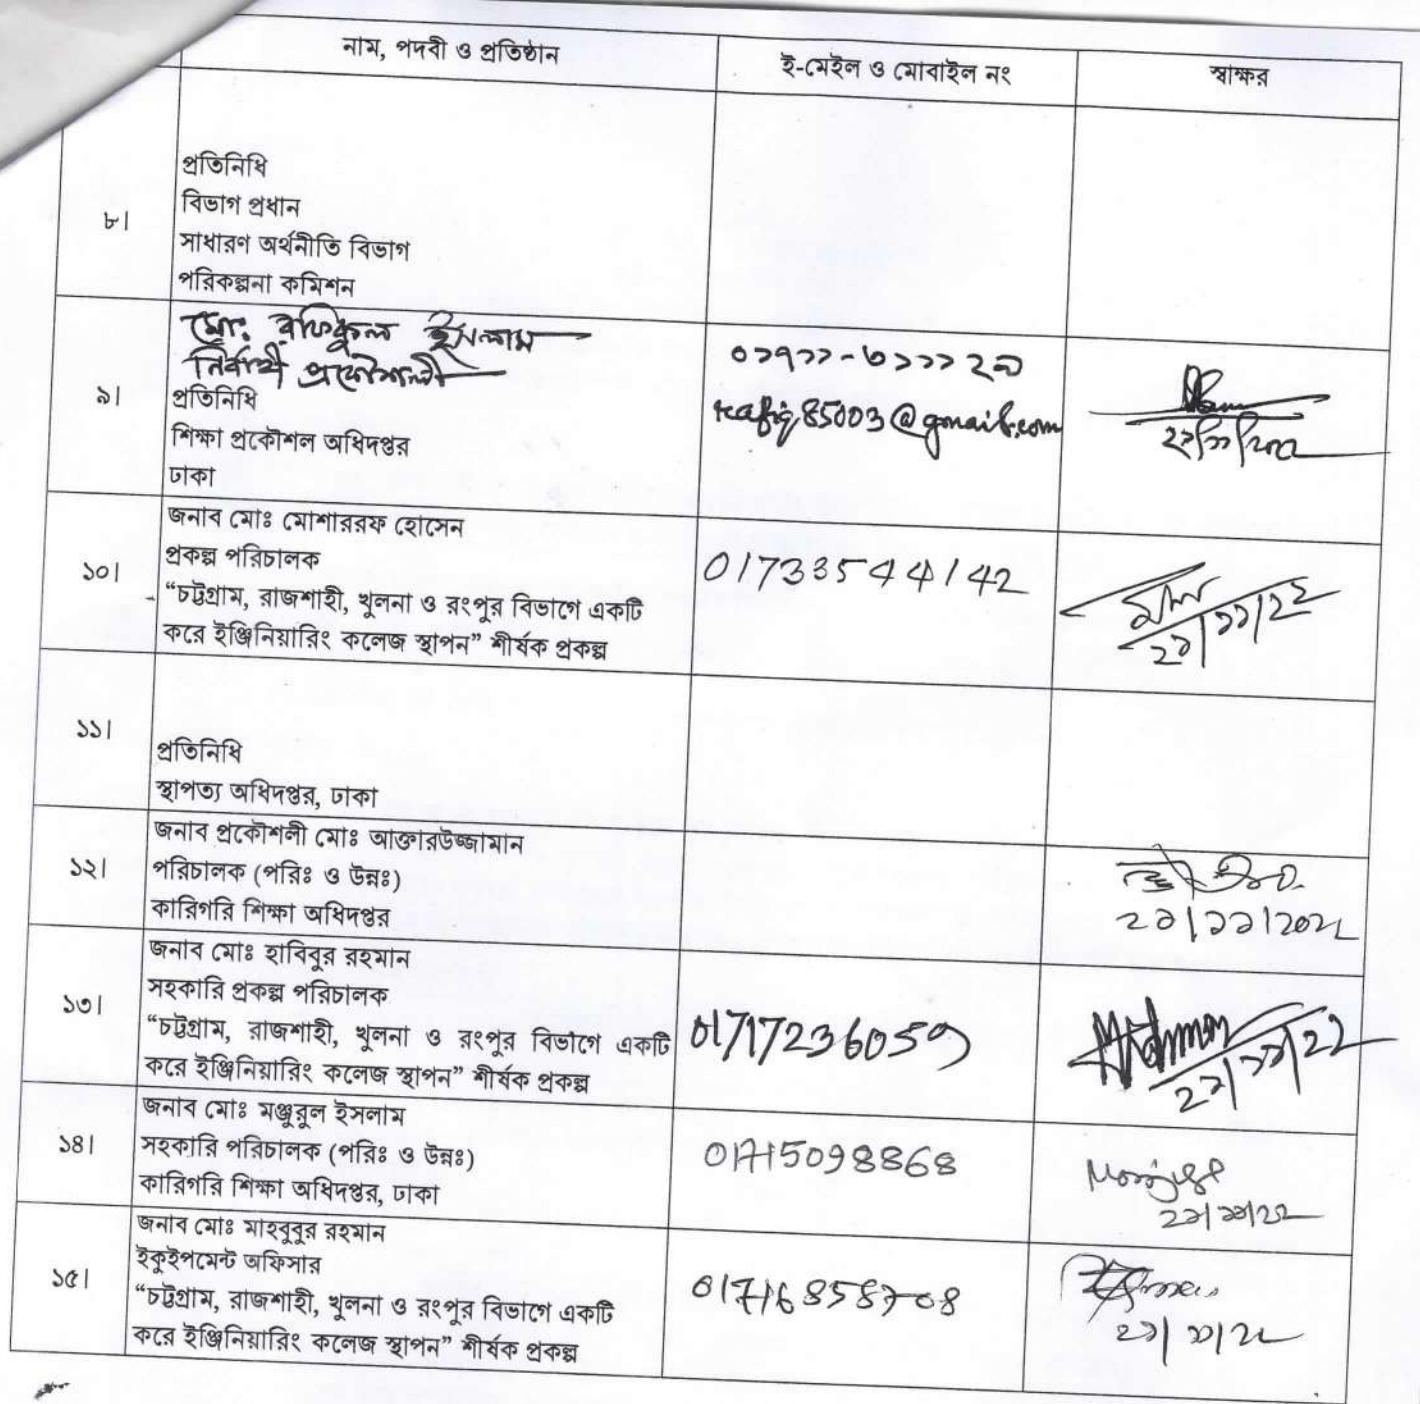 নাম, পদবী ও প্রতিষ্ঠান
ই-মেইল ও মোবাইল নং
স্বাক্ষর
৮।
প্রতিনিধি
বিভাগ প্রধান
সাধারণ অর্থনীতি বিভাগ
পরিকল্পনা কমিশন
৯।
মো: রফিকুল ইসলাম
নির্বাহী প্রকৌশলী
প্রতিনিধি
শিক্ষা প্রকৌশল অধিদপ্তর
ঢাকা
০১৭১১-৩১১১২৯
rafiq85003@gmail.com
১০।
জনাব মোঃ মোশাররফ হোসেন
প্রকল্প পরিচালক
“চট্টগ্রাম, রাজশাহী, খুলনা ও রংপুর বিভাগে একটি
করে ইঞ্জিনিয়ারিং কলেজ স্থাপন” শীর্ষক প্রকল্প
01733544142
২১/১১/২২
১১।
প্রতিনিধি
স্থাপত্য অধিদপ্তর, ঢাকা
১২।
জনাব প্রকৌশলী মোঃ আক্তারউজ্জামান
পরিচালক (পরিঃ ও উন্নঃ)
কারিগরি শিক্ষা অধিদপ্তর
২১/১১/২০২২
১৩।
জনাব মোঃ হাবিবুর রহমান
সহকারি প্রকল্প পরিচালক
“চট্টগ্রাম, রাজশাহী, খুলনা ও রংপুর বিভাগে একটি
করে ইঞ্জিনিয়ারিং কলেজ স্থাপন” শীর্ষক প্রকল্প
01717236059
২১/১১/২২
১৪।
জনাব মোঃ মঞ্জুরুল ইসলাম
সহকারি পরিচালক (পরিঃ ও উন্নঃ)
কারিগরি শিক্ষা অধিদপ্তর, ঢাকা
01715098868
২১/১১/২২
১৫।
জনাব মোঃ মাহবুবুর রহমান
ইকুইপমেন্ট অফিসার
“চট্টগ্রাম, রাজশাহী, খুলনা ও রংপুর বিভাগে একটি
করে ইঞ্জিনিয়ারিং কলেজ স্থাপন” শীর্ষক প্রকল্প
01716858708
২১/১১/২২